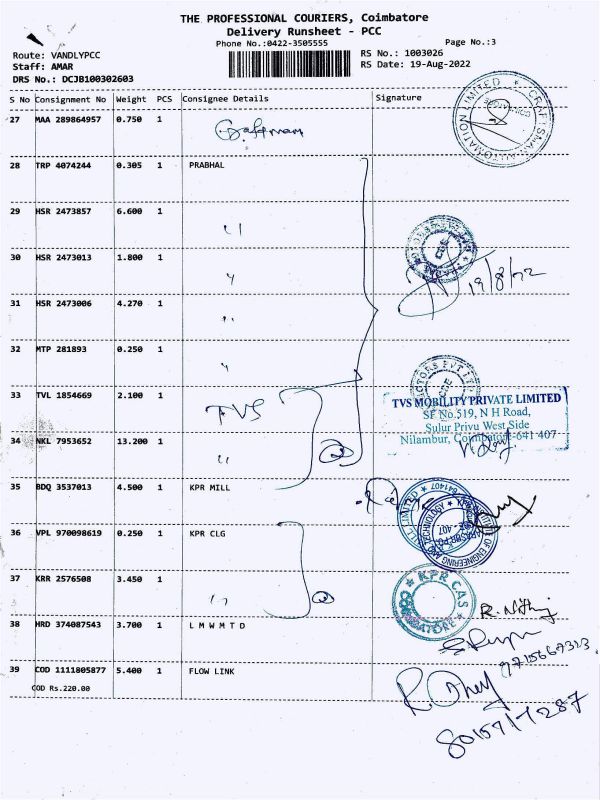 THE PROFESSIONAL COURIERS, Coimbatore
Delivery Runsheet - PCC
Phone No.:0422-3505555
Page No.:3
Route: VANDLYPCC
Staff: AMAR
DRS No.: DCJB100302603
RS No.: 1003026
RS Date: 19-Aug-2022
S No Consignment No Weight PCS Consignee Details Signature
27 MAA 289864957 0.750 1
CRAFTSMAN AUTOMATION LIMITED
28 TRP 4074244 0.305 1 PRABHAL
29 HSR 2473857 6.600 1 "
30 HSR 2473013 1.800 1 "
19/8/22
31 HSR 2473006 4.270 1 "
32 MTP 281893 0.250 1 "
33 TVL 1854669 2.100 1 TVS
TVS MOBILITY PRIVATE LIMITED
SF No.519, N H Road,
Sulur Privu West Side
Nilambur, Coimbatore-641 407
34 NKL 7953652 13.200 1 "
35 BDQ 3537013 4.500 1 KPR MILL
36 VPL 970098619 0.250 1 KPR CLG
37 KRR 2576508 3.450 1 "
KPR CAS
COIMBATORE
38 HRD 374087543 3.700 1 L M W M T D
39 COD 1111805877 5.400 1 FLOW LINK
COD Rs.220.00